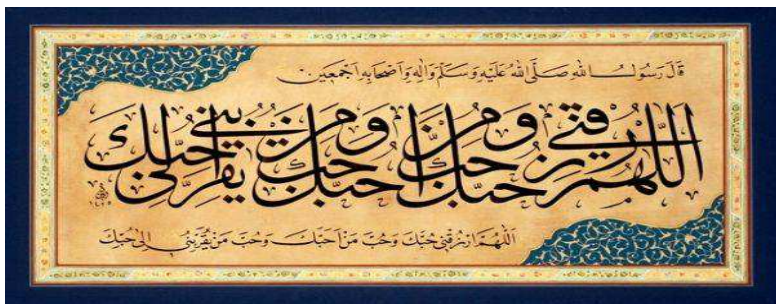 قَالَ رَسُولُ اللهِ صَلَّى اللهُ عَلَيْهِ وَسَلَّمَ وَاٰلِهِ وَاَصْحَابِهِ اَجْمَعِينَ
اللهم ارزقني حبك وحب من احبك وحب من يقربني الى حبك
اَللّٰهُمَّ ارْزُقْنِى حُبَّكَ وَحُبَّ مَنْ اَحَبَّكَ وَحُبَّ مَنْ يُقَرِّبُنِى اِلٰى حُبِّكَ